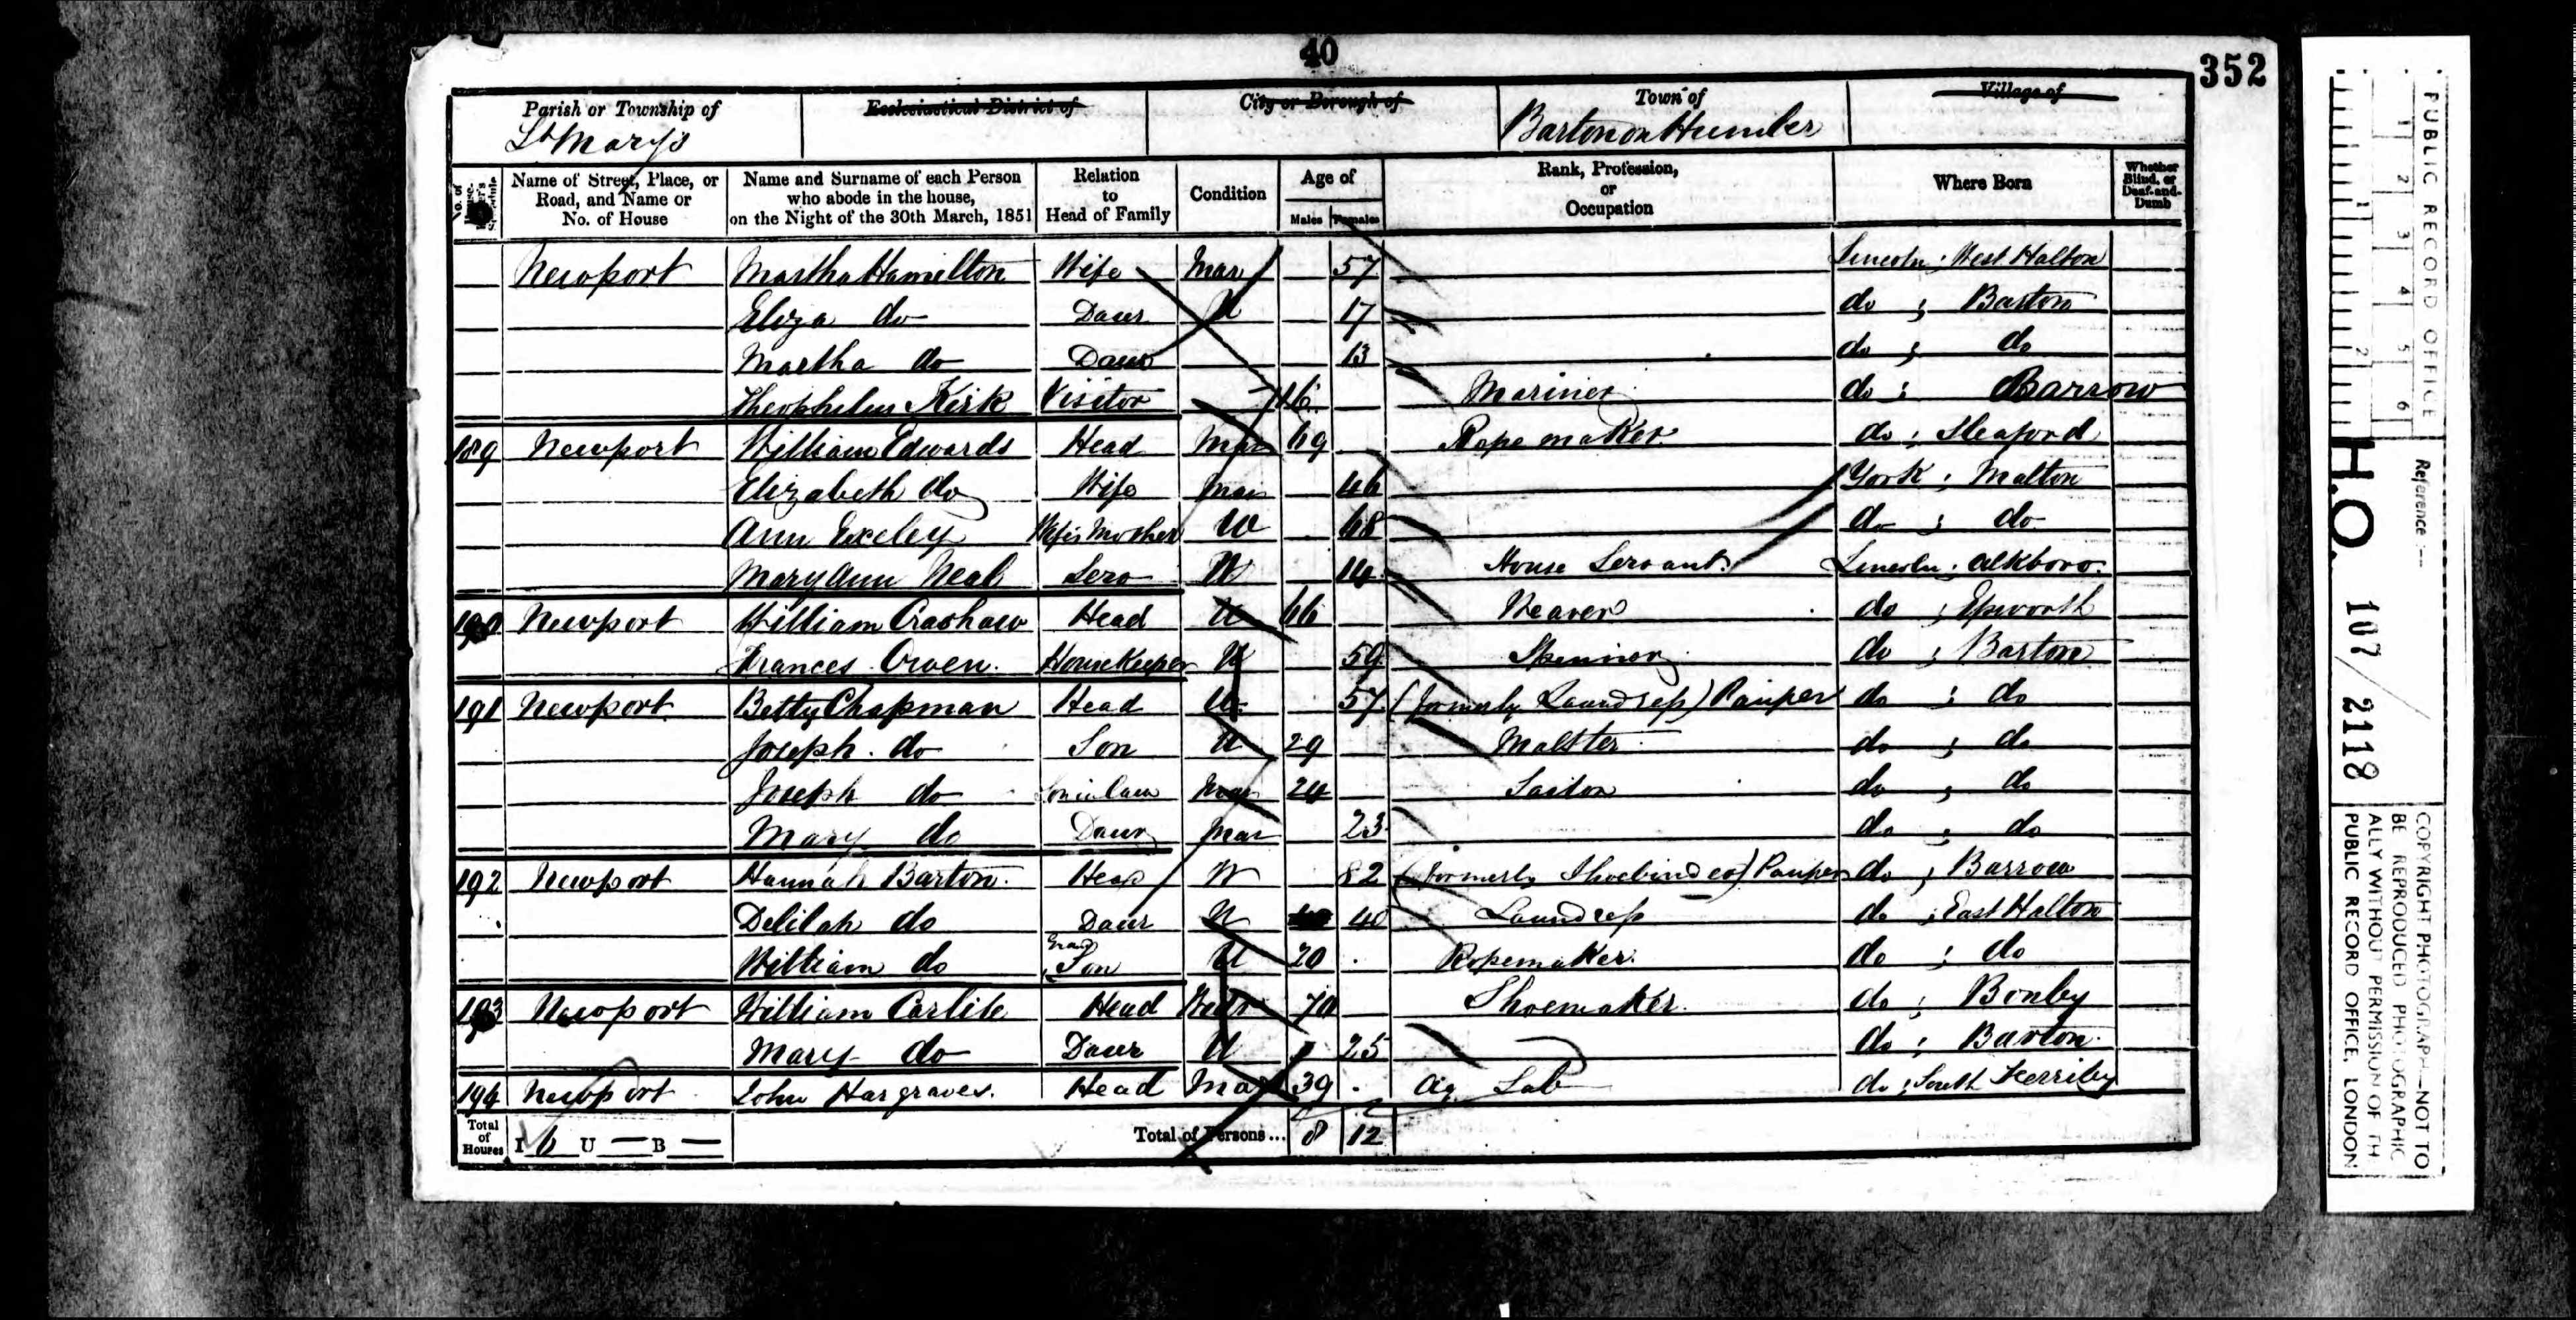 40
352
Parish or Township of Ecclesiastical District of City or Borough of Town of Village of
St Mary's Barton on Humber
No. of House-holder's Schedule Name of Street, Place, or Road, and Name or No. of House Name and Surname of each Person who abode in the house, on the Night of the 30th March, 1851 Relation to Head of Family Condition Age of Males Females Rank, Profession, or Occupation Where Born Whether Blind, or Deaf-and-Dumb
Newport Martha Hamilton Wife Mar 57 Lincoln; West Halton
Eliza do Daur U 17 do ; Barton
Martha do Daur 13 do ; do
Theophilus Kirk Visitor 16 Mariner do ; Barrow
189 Newport William Edwards Head Mar 69 Rope maker do ; Sleaford
Elizabeth do Wife Mar 46 York ; Malton
Ann Exeley Wife's Mother W 68 do ; do
Mary Ann Neal Serv U 14 House Servant Lincoln ; Alkboro
190 Newport William Crashaw Head U 66 Weaver do ; Epworth
Frances Owen Housekeeper U 59 do ; Barton
191 Newport Betty Chapman Head U 57 (formerly Laundress) Pauper do ; do
Joseph do Son U 29 Maltster do ; do
Joseph do Son in law Mar 24 Sailor do ; do
Mary do Daur Mar 23 do ; do
192 Newport Hannah Barton Head W 82 (formerly Shoebinder) Pauper do ; Barrow
Delilah do Daur U 40 Laundress do ; East Halton
William do Grand Son U 20 Ropemaker do ; do
193 Newport William Carlile Head Widr 70 Shoemaker do ; Bonby
Mary do Daur U 25 do ; Barton
194 Newport John Hargraves Head Mar 39 Ag Lab do ; South Ferriby
Total of Houses I 6 U — B — Total of Persons... 8 12
PUBLIC RECORD OFFICE
1 2 3 4 5 6
1 2
Reference :—
H.O. 107/2118
COPYRIGHT PHOTOGRAPH—NOT TO
BE REPRODUCED PHOTOGRAPHIC
ALLY WITHOUT PERMISSION OF TH
PUBLIC RECORD OFFICE, LONDON